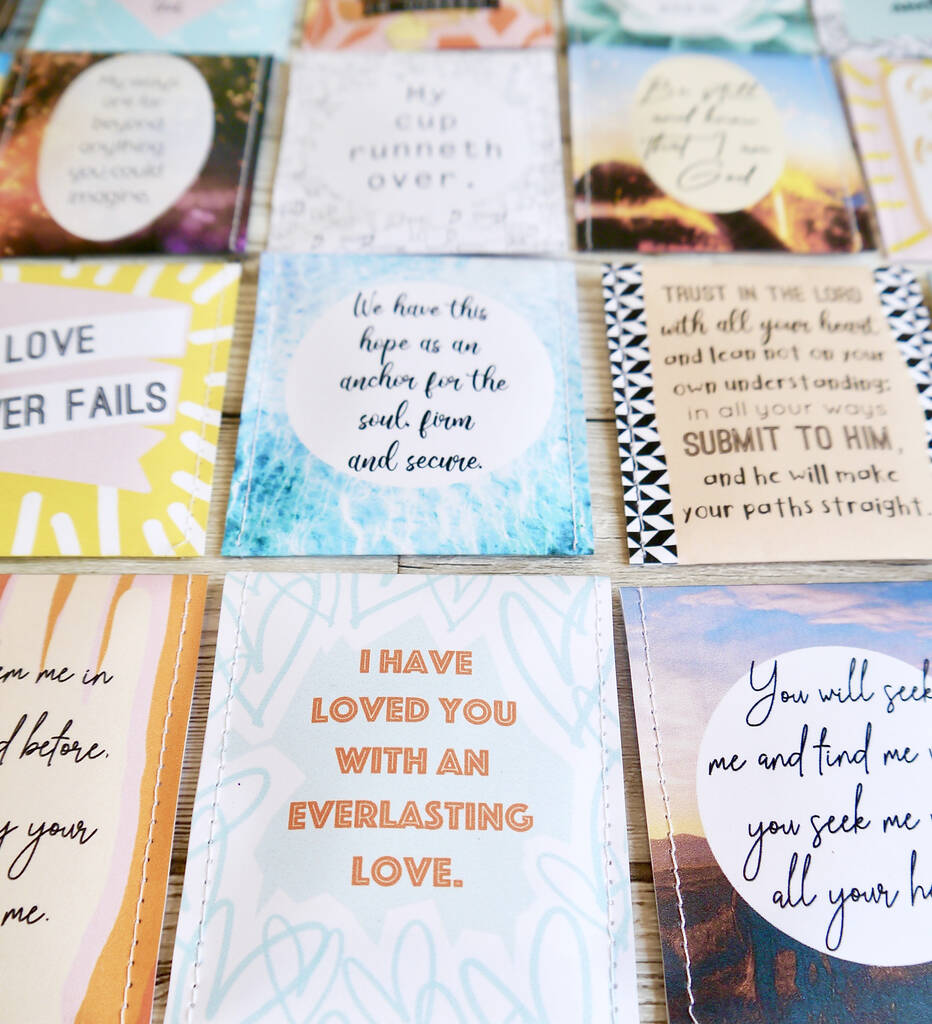 My ways
are far
beyond
anything
you could
imagine.
My
cup
runneth
over.
Be still
and know
that I am
God
LOVE
VER FAILS
We have this
hope as an
anchor for the
soul, firm
and secure.
TRUST IN THE LORD
with all your heart
and lean not on your
own understanding;
in all your ways
SUBMIT TO HIM,
and he will make
your paths straight.
em me in
d before,
y your
me.
I HAVE
LOVED YOU
WITH AN
EVERLASTING
LOVE.
You will seek
me and find me
you seek me
all your